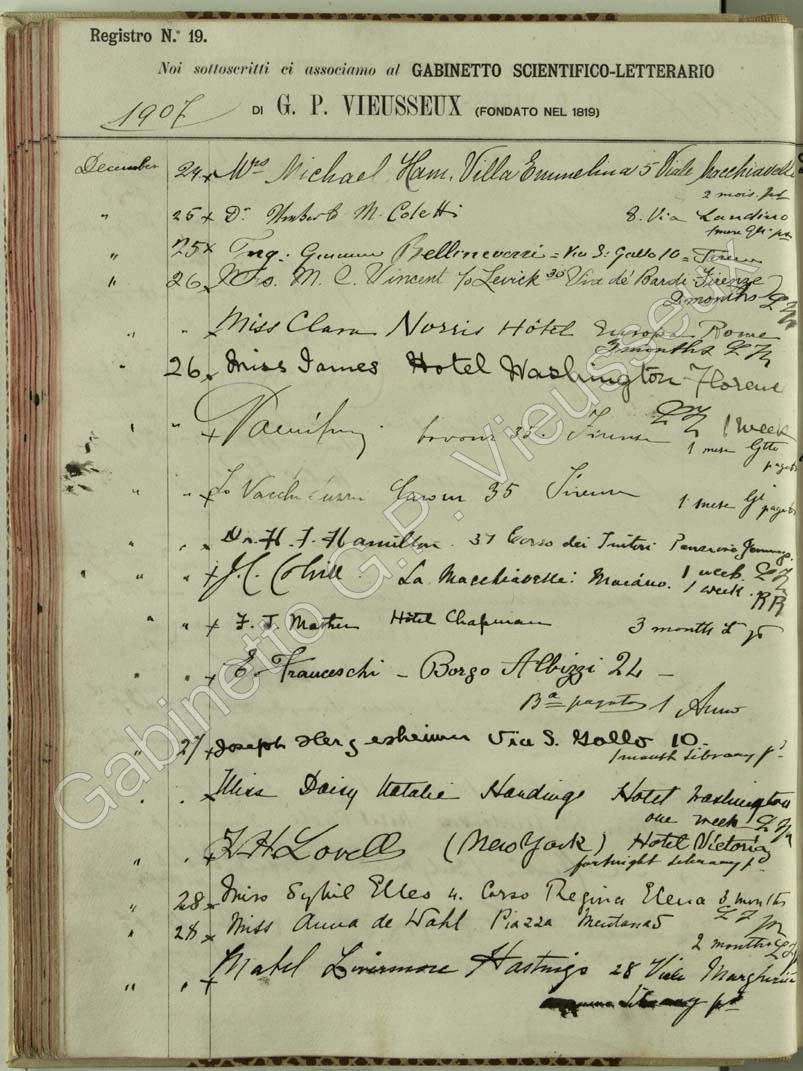 Registro N.° 19.
Noi sottoscritti ci associamo al GABINETTO SCIENTIFICO-LETTERARIO
1907 DI G. P. VIEUSSEUX (FONDATO NEL 1819)
December 24 x Mrs Michael Ham, Villa Emmelina 5 Viale Macchiavelli
2 mois pd
" 25 x Dr. Umberto M. Coletti 8. Via Landino
1 mese
" 25 x Ing: Bellincioni = Via S: Gallo 10 = Firenze
" 26 M. C. Vincent c/o Levick 30 Via de' Bardi Firenze
2 months
" " Miss Clara Norris Hôtel Europe Rome
3 months
" 26 x Miss James Hotel Washington Florence
1 week
" " x Cavour 35. Firenze
1 mese pagato
" " x Cavour 35 Firenze
1 mese pagato
" " Dr. H. J. Hamilton. 31 Corso dei Tintori Pensione
" " x J. C. La Macchiavelli: Maiano. 1 week.
1 week. RR
" " x F. J. Mather Hôtel Chapman
3 month
" " x E. Franceschi - Borgo Albizzi 24 -
pagato 1 Anno
" 27 x Joseph Hergesheimer Via S. Gallo 10.
1 month Library pd
" " x Miss Daisy Natalie Hardinge Hotel Washington
one week
" " x F H Lovell (New York) Hotel Victoria
fortnight Library pd
" 28 x Miss Sybil Elles 4. Corso Regina Elena 3 months
" 28 x Miss Anna de Wahl Piazza Mentana 5
2 months
" " x Mabel Livermore Hastings 28 Viale Margherita
Library pd
Gabinetto G.P. Vieusseux